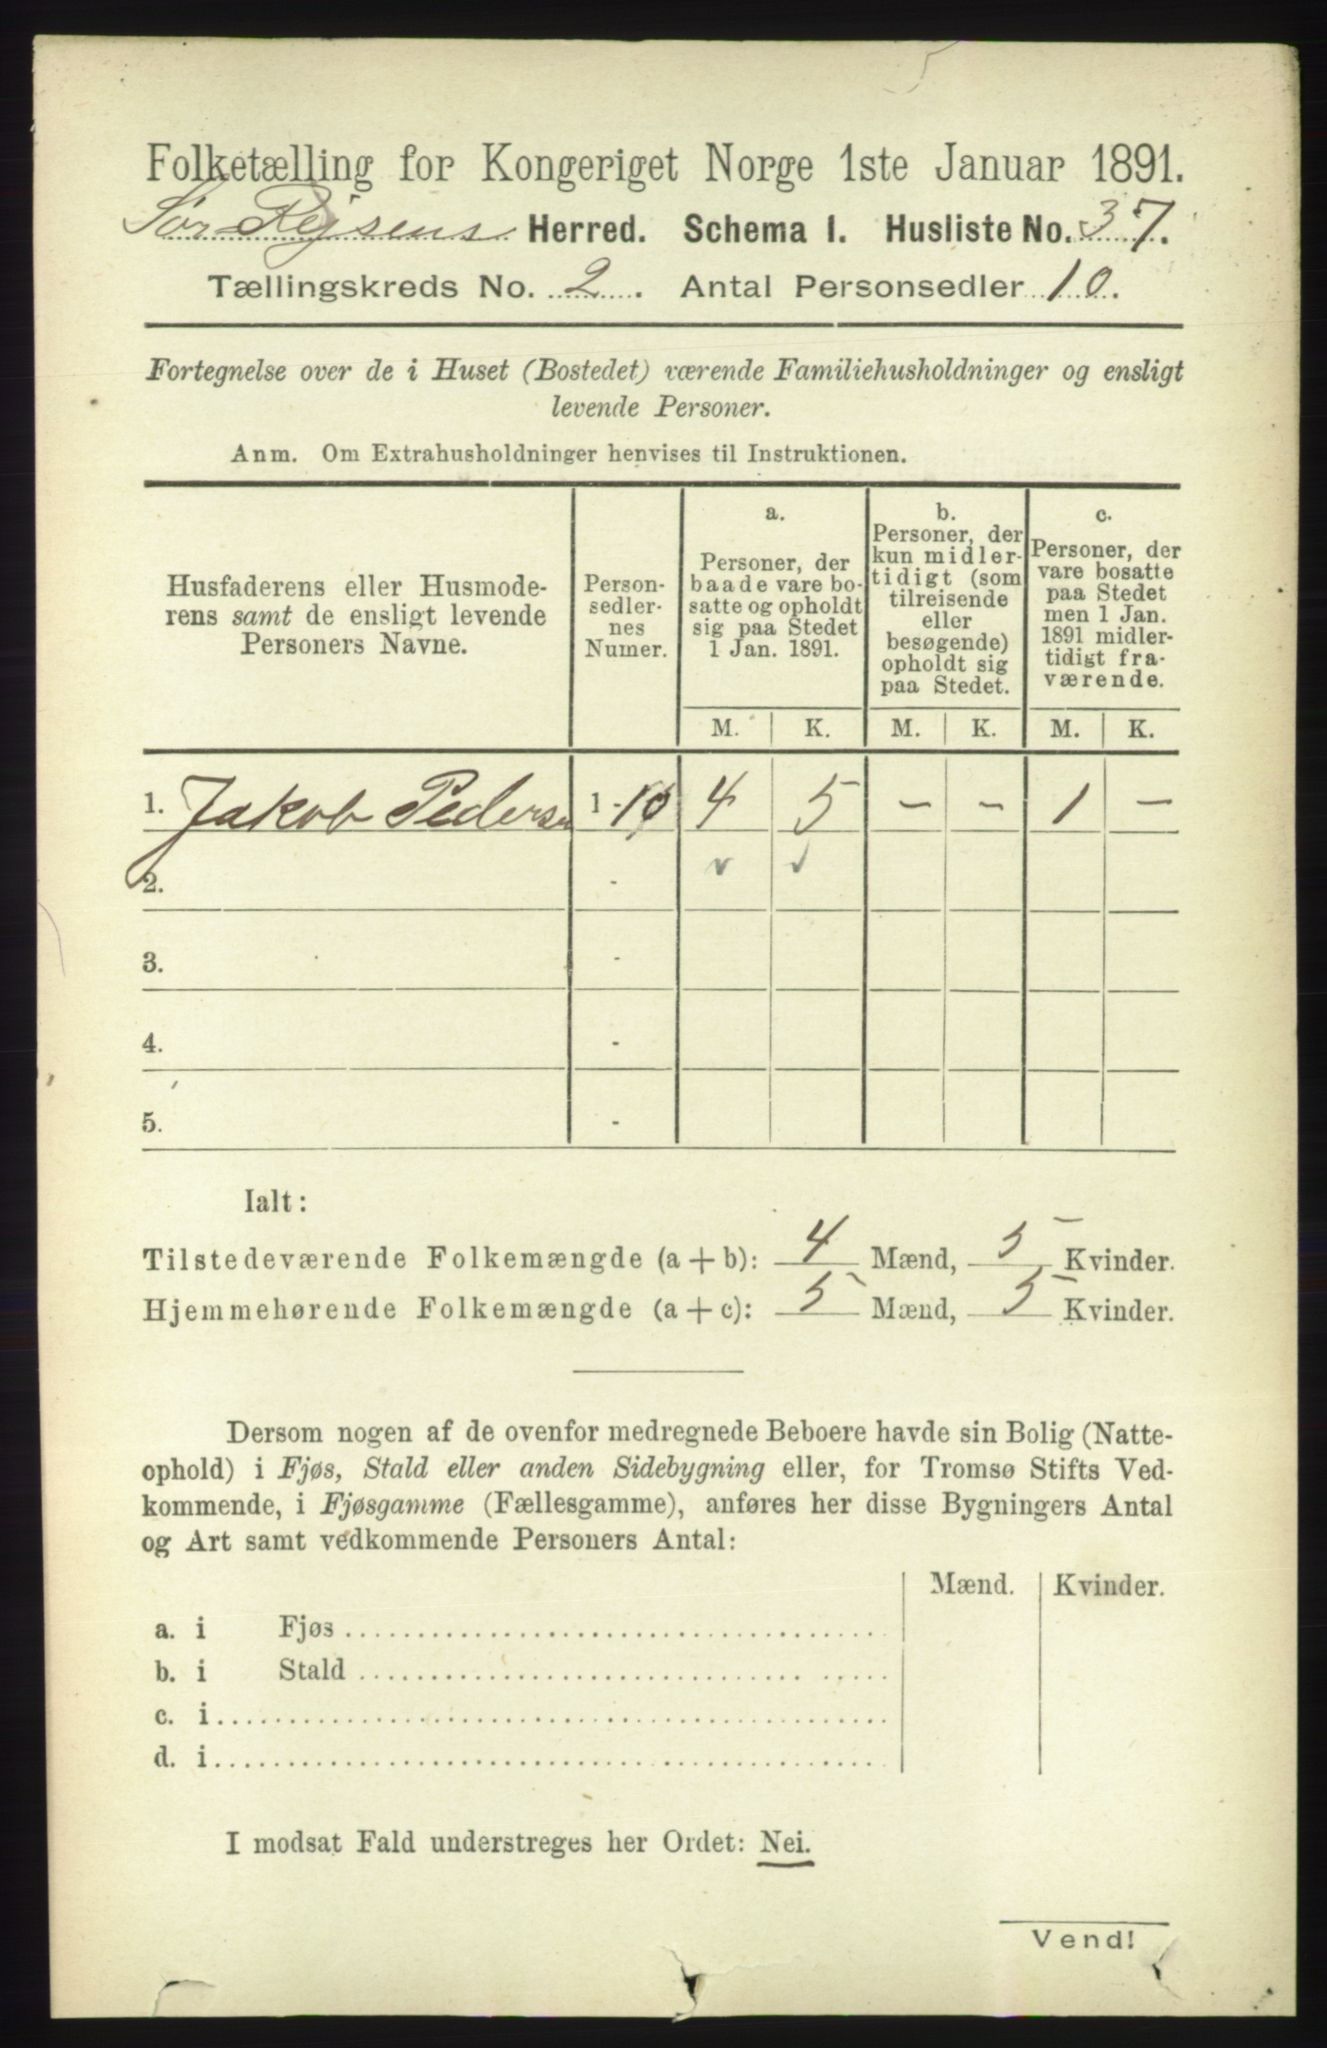 Folketælling for Kongeriget Norge 1ste Januar 1891.
Sør Rejsens Herred. Schema 1. Husliste No. 37.
Tællingskreds No. 2. Antal Personsedler 10.
Fortegnelse over de i Huset (Bostedet) værende Familiehusholdninger og ensligt
levende Personer.
Anm. Om Extrahusholdninger henvises til Instruktionen.
Husfaderens eller Husmode-
rens samt de ensligt levende
Personers Navne.
Person-
sedler-
nes
Numer.
a.
Personer, der
baade vare bo-
satte og opholdt
sig paa Stedet
1 Jan. 1891.
b.
Personer, der
kun midler-
tidigt (som
tilreisende
eller
besøgende)
opholdt sig
paa Stedet.
c.
Personer, der
vare bosatte
paa Stedet
men 1 Jan.
1891 midler-
tidigt fra-
værende.
M. K. M. K. M. K.
1. Jakob Pedersen 1-10 4 5 - - 1 -
2. -
3. -
4. -
5. -
Ialt:
Tilstedeværende Folkemængde (a + b): 4 Mænd, 5 Kvinder.
Hjemmehørende Folkemængde (a + c): 5 Mænd, 5 Kvinder.
Dersom nogen af de ovenfor medregnede Beboere havde sin Bolig (Natte-
ophold) i Fjøs, Stald eller anden Sidebygning eller, for Tromsø Stifts Ved-
kommende, i Fjøsgamme (Fællesgamme), anføres her disse Bygningers Antal
og Art samt vedkommende Personers Antal:
Mænd. Kvinder.
a. i Fjøs
b. i Stald
c. i
d. i
I modsat Fald understreges her Ordet: Nei.
Vend!